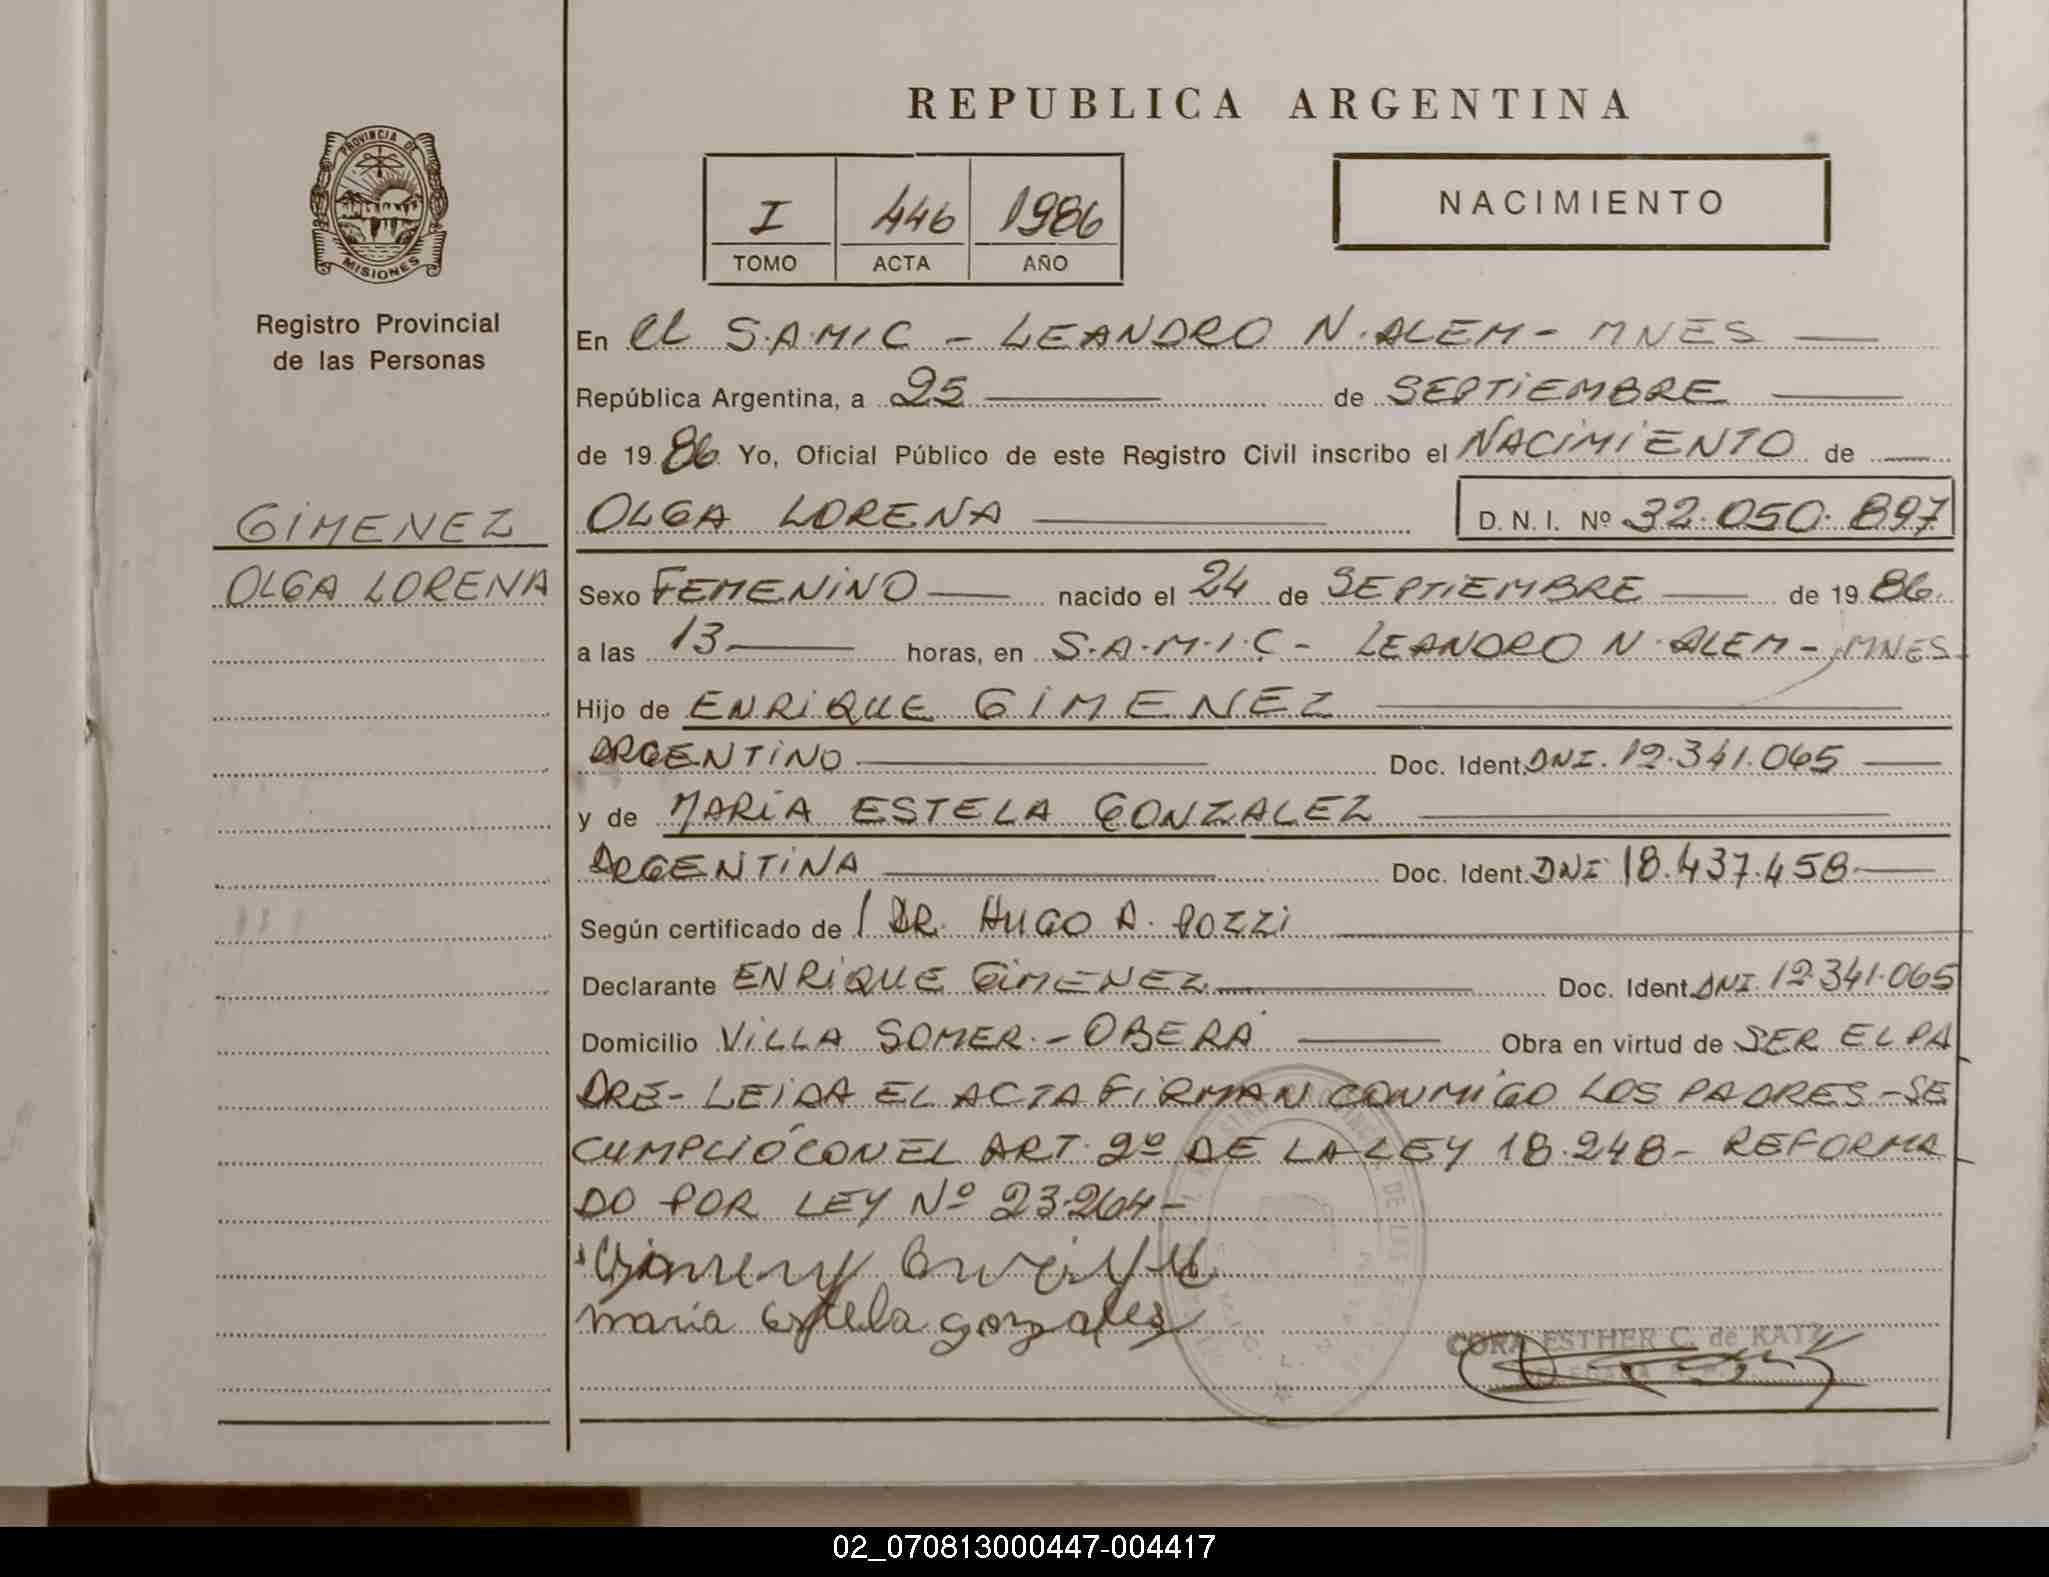 REPUBLICA ARGENTINA
PROVINCIA DE
MISIONES
Registro Provincial
de las Personas
I 446 1986
TOMO ACTA AÑO
NACIMIENTO
En el S.A.M.I.C - LEANDRO N. ALEM - MNES
República Argentina, a 25 de SEPTIEMBRE
de 1986 Yo, Oficial Público de este Registro Civil inscribo el NACIMIENTO de
GIMENEZ
OLGA LORENA D.N.I. Nº 32.050.897
OLGA LORENA
Sexo FEMENINO nacido el 24 de SEPTIEMBRE de 1986.
a las 13 horas, en S.A.M.I.C - LEANDRO N. ALEM - MNES
Hijo de ENRIQUE GIMENEZ
ARGENTINO Doc. Ident. DNI. 12.341.065
y de MARIA ESTELA GONZALEZ
ARGENTINA Doc. Ident. DNI 18.437.458
Según certificado de DR. HUGO A. POZZI
Declarante ENRIQUE GIMENEZ Doc. Ident. DNI. 12.341.065
Domicilio VILLA SOMER - OBERA Obra en virtud de SER EL PA
DRE - LEIDA EL ACTA FIRMAN CONMIGO LOS PADRES - SE
CUMPLIÓ CON EL ART. 2º DE LA LEY 18.248 - REFORMA
DO POR LEY Nº 23.264 -
Gimenez Enrique
maria estela gonzalez
CORA ESTHER C. de KATZ
02_070813000447-004417